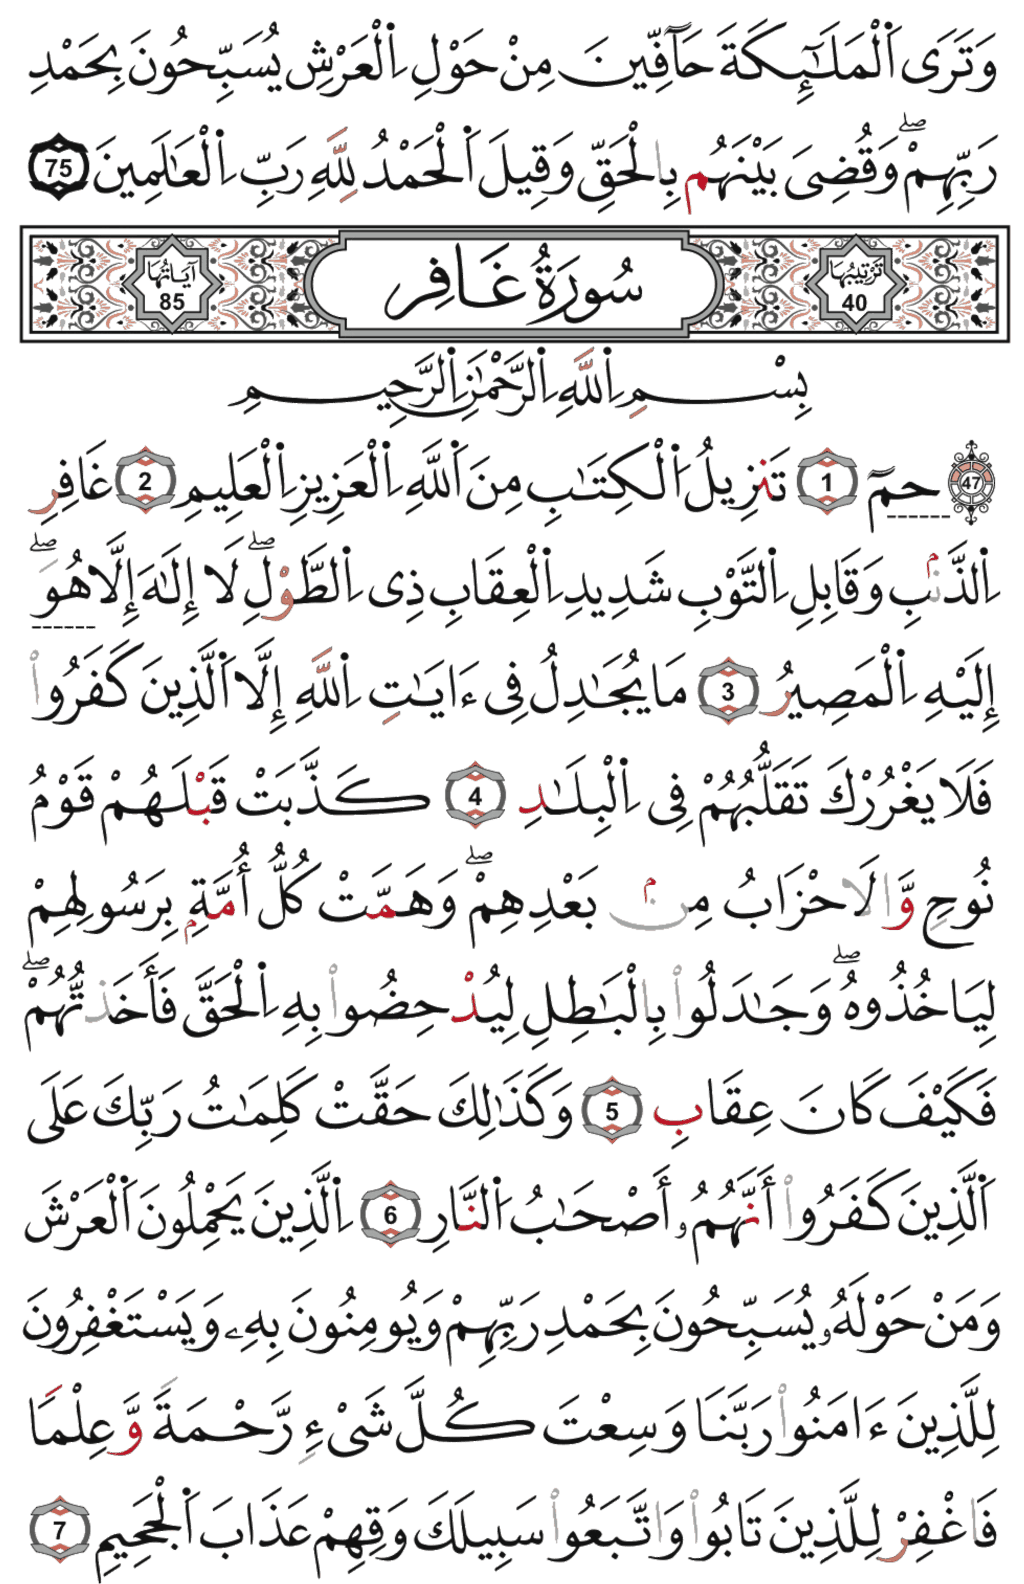 وَتَرَى اَ۬لْمَلَٰٓئِكَةَ حَآفِّينَ مِنْ حَوْلِ اِ۬لْعَرْشِ يُسَبِّحُونَ بِحَمْدِ
رَبِّهِمْۖ وَقُضِىَ بَيْنَهُم بِالْحَقِّ وَقِيلَ اَ۬لْحَمْدُ لِلَّهِ رَبِّ اِ۬لْعَٰلَمِينَ 75
تَرْتِيبُهَا 40 سُورَةُ غَافِرٍ آيَاتُهَا 85
بِسْمِ اِ۬للَّهِ اِ۬لرَّحْمَٰنِ اِ۬لرَّحِيمِ
47 حمٓ 1 تَنزِيلُ اُ۬لْكِتَٰبِ مِنَ اَ۬للَّهِ اِ۬لْعَزِيزِ اِ۬لْعَلِيمِ 2 غَافِرِ
اِ۬لذَّنۢبِ وَقَابِلِ اِ۬لتَّوْبِ شَدِيدِ اِ۬لْعِقَابِ ذِى اِ۬لطَّوْلِۖ لَا إِلَٰهَ إِلَّا هُوَۖ
إِلَيْهِ اِ۬لْمَصِيرُ 3 مَا يُجَٰدِلُ فِى ءَايَٰتِ اِ۬للَّهِ إِلَّا اَ۬لَّذِينَ كَفَرُوا۟
فَلَا يَغْرُرْكَ تَقَلُّبُهُمْ فِى اِ۬لْبِلَٰدِ 4 كَذَّبَتْ قَبْلَهُمْ قَوْمُ
نُوحٍ وَّالَاحْزَابُ مِنۢ بَعْدِهِمْۖ وَهَمَّتْ كُلُّ أُمَّةِۭ بِرَسُولِهِمْ
لِيَاخُذُوهُۖ وَجَٰدَلُوا۟ بِالْبَٰطِلِ لِيُدْحِضُوا۟ بِهِ اِ۬لْحَقَّ فَأَخَذتُّهُمْۖ
فَكَيْفَ كَانَ عِقَابِ 5 وَكَذَٰلِكَ حَقَّتْ كَلِمَٰتُ رَبِّكَ عَلَى
اَ۬لَّذِينَ كَفَرُوا۟ أَنَّهُمُۥ أَصْحَٰبُ اُ۬لنَّارِ 6 اِ۬لَّذِينَ يَحْمِلُونَ اَ۬لْعَرْشَ
وَمَنْ حَوْلَهُۥ يُسَبِّحُونَ بِحَمْدِ رَبِّهِمْ وَيُومِنُونَ بِهِۦ وَيَسْتَغْفِرُونَ
لِلَّذِينَ ءَامَنُوا۟ رَبَّنَا وَسِعْتَ كُلَّ شَىْءٍ رَّحْمَةً وَّعِلْمًا
فَاغْفِرْ لِلَّذِينَ تَابُوا۟ وَاتَّبَعُوا۟ سَبِيلَكَ وَقِهِمْ عَذَابَ اَ۬لْجَحِيمِ 7